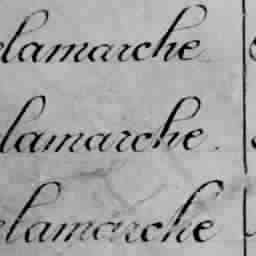 elamarche
elamarche.
elamarche